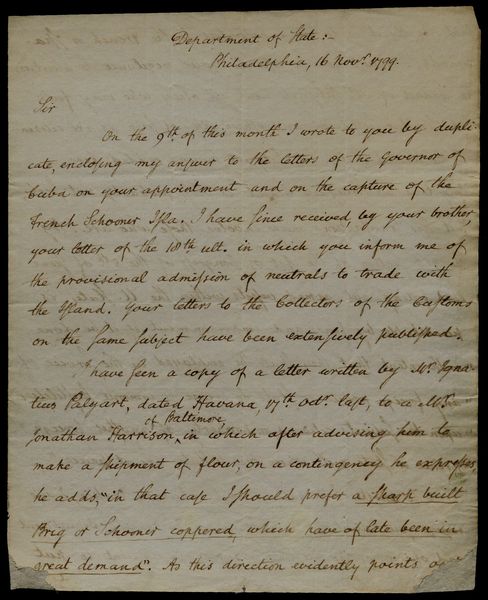 Department of State:-
Philadelphia, 16 Novr. 1799.
Sir
On the 9th. of this month I wrote to you by dupli-
cate, enclosing my answer to the letters of the Governor of
Cuba on your appointment and on the capture of the
French Schooner Isla. I have since received, by your brother,
your letter of the 18th. ult. in which you inform me of
the provisional admission of neutrals to trade with
the Island. Your letters to the Collectors of the Customs
on the same subject have been extensively published.
I have seen a copy of a letter written by Mr. Igna-
tius Palyart, dated Havana, 17th. Octr. last, to a Mr.
of Baltimore,
Jonathan Harrison, in which after advising him to
make a shipment of flour, on a contingency he expresses,
he adds, "in that case I should prefer a sharp built
Brig or Schooner coppered, which have of late been in
great demand". As this direction evidently points